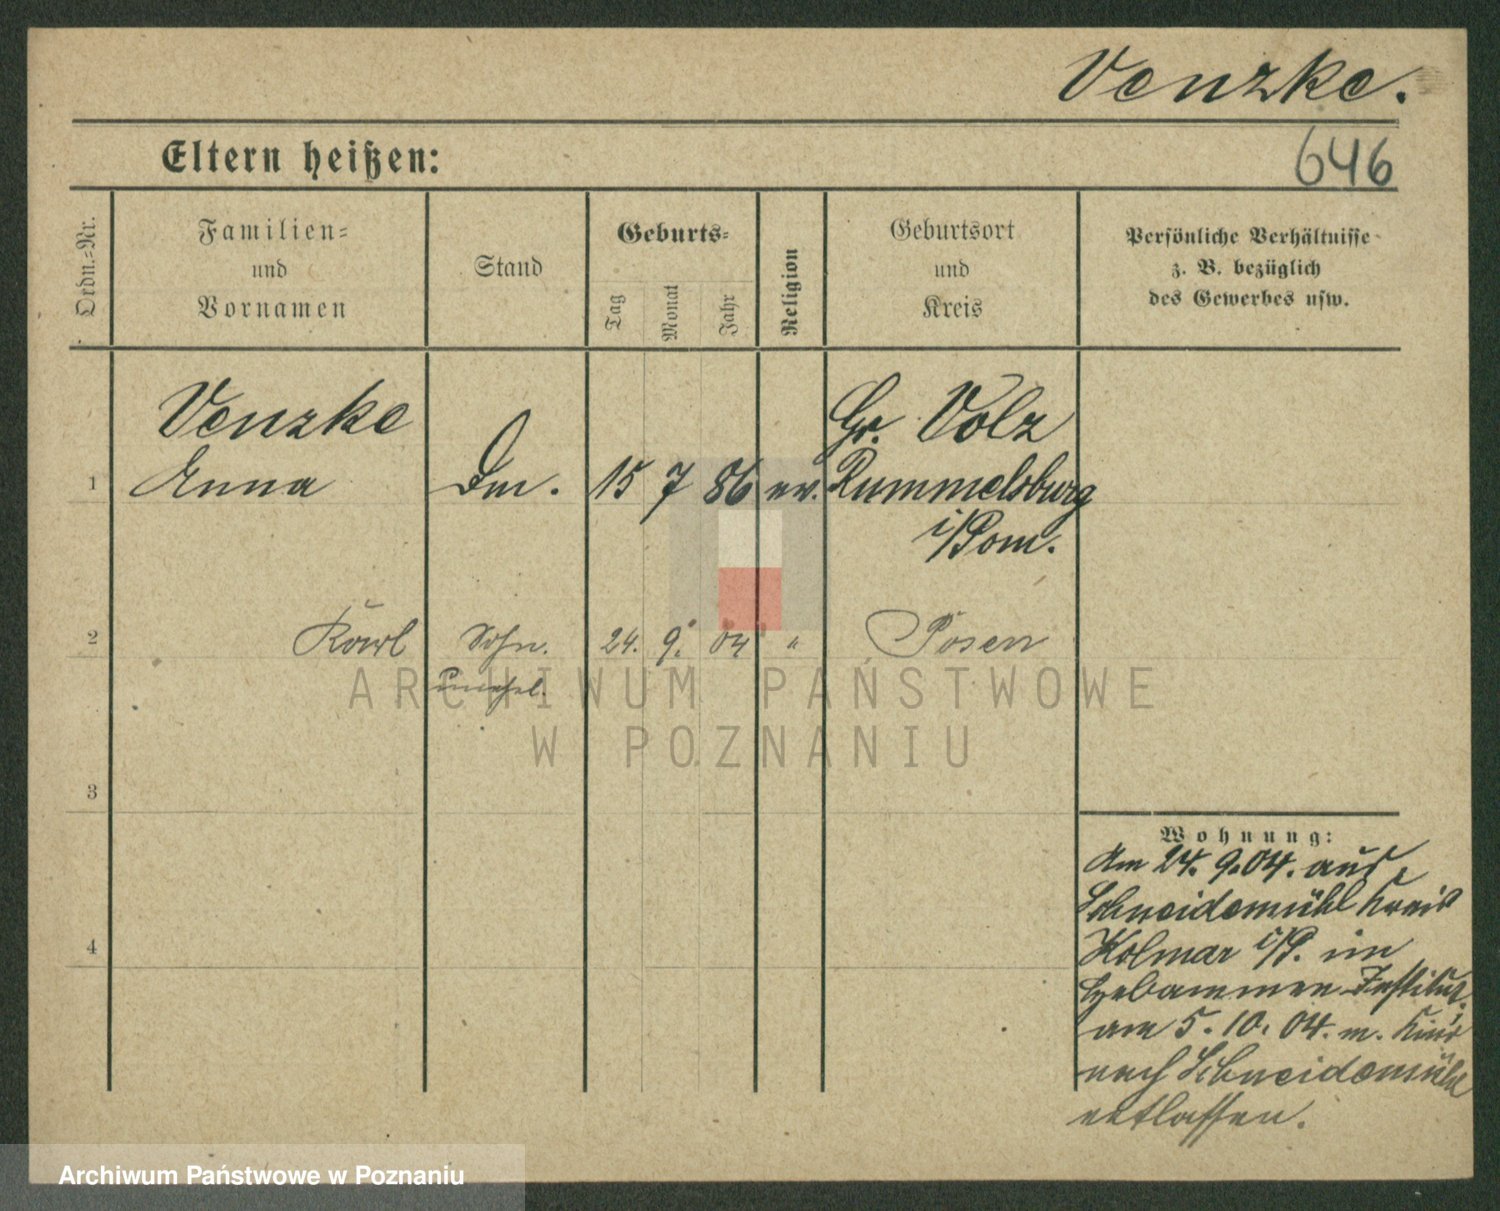 Venzke.
Eltern heißen:
646
Ordn.-Nr.
Familien-
und
Vornamen
Stand
Geburts-
Tag
Monat
Jahr
Religion
Geburtsort
und
Kreis
Persönliche Verhältnisse
z. B. bezüglich
des Gewerbes usw.
Venzke
Gr. Volz
1 Anna 15 7 86 ev. Rummelsburg
i/Pom.
2 Karl Sohn. 24. 9. 04 " Posen
unehel.
ARCHIWUM PAŃSTWOWE
W POZNANIU
3
4
Wohnung:
Am 24. 9. 04. aus
Schneidemühl Kreis
Kolmar i/P. im
Hebammen Institut.
am 5. 10. 04. m. Kind
nach Schneidemühl
entlassen.
Archiwum Państwowe w Poznaniu